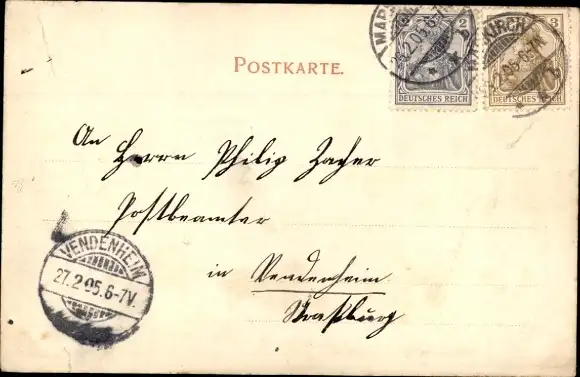 POSTKARTE.
2
DEUTSCHES REICH
3
DEUTSCHES REICH
An Herrn Philip Zacher
Postbeamter
in Vendenheim
Straßburg
VENDENHEIM
27.2 05.6-7V.